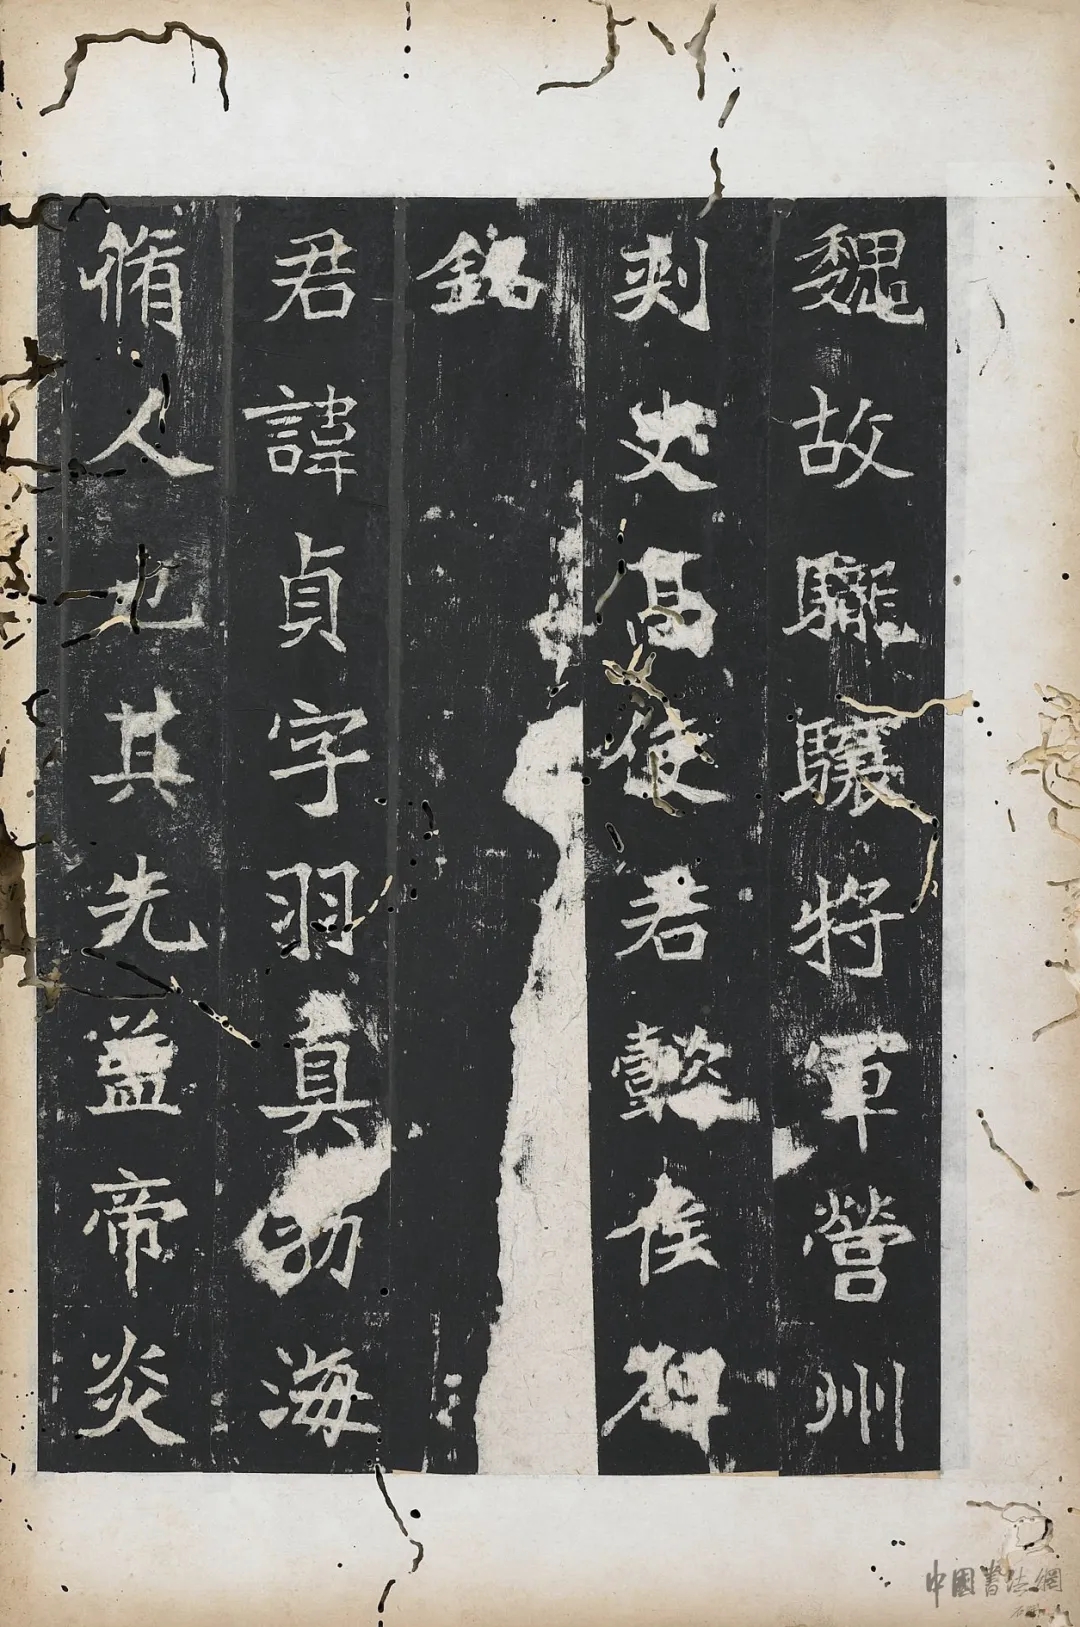 魏故驪驤將軍營州
刾史高使君懿侯碑
銘
君諱貞字羽真勃海
脩人也其先盖帝炎
中國書法網